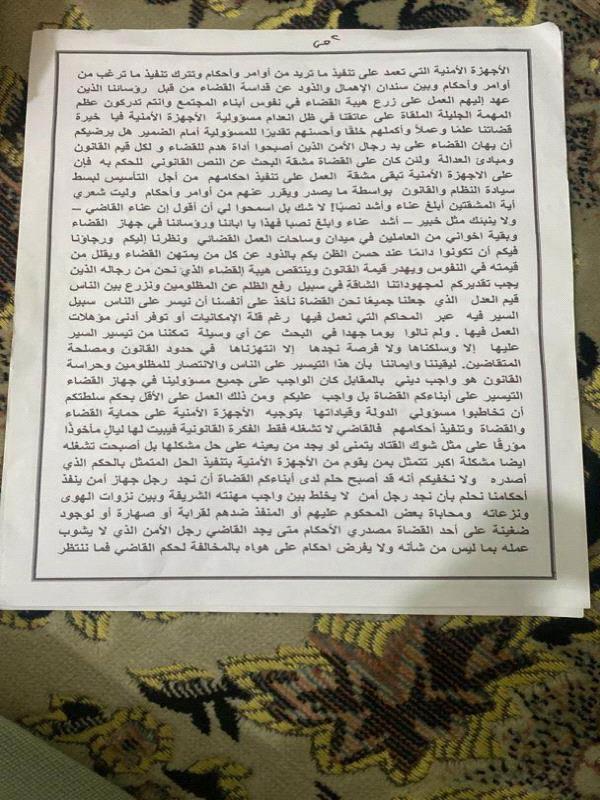 ص٢
الأجهزة الأمنية التي تعمد على تنفيذ ما تريد من أوامر وأحكام وتترك تنفيذ ما ترغب من
أوامر وأحكام وبين سندان الإهمال والذود عن قداسة القضاء من قبل رؤساننا الذين
عهد إليهم العمل على زرع هيبة القضاء في نفوس أبناء المجتمع وانتم تدركون عظم
المهمة الجليلة الملقاة على عاتقنا في ظل انعدام مسؤولية الأجهزة الأمنية فيا خيرة
قضاتنا علمًا وعملاً وأكملهم خلقًا وأحسنهم تقديرًا للمسؤولية أمام الضمير هل يرضيكم
أن يهان القضاء على يد رجال الأمن الذين أصبحوا أداة هدم للقضاء و لكل قيم القانون
ومبادئ العدالة ولئن كان على القضاة مشقة البحث عن النص القانوني للحكم به فإن
على الاجهزة الأمنية تبقى مشقة العمل على تنفيذ احكامهم من أجل التأسيس لبسط
سيادة النظام والقانون بواسطة ما يصدر ويقرر عنهم من أوامر وأحكام وليت شعري
أية المشقتين أبلغ عناء وأشد نصبًا! لا شك بل اسمحوا لي أن أقول إن عناء القاضي –
ولا ينبئك مثل خبير – أشد عناء وابلغ نصبا فهذا يا اباننا ورؤساننا في جهاز القضاء
وبقية اخواني من العاملين في ميدان وساحات العمل القضائي ونظرنا إليكم ورجاؤنا
فيكم أن تكونوا دائمًا عند حسن الظن بكم بالذود عن كل من يمتهن القضاء ويقلل من
قيمته في النفوس ويهدر قيمة القانون وينتقص هيبة القضاء الذي نحن من رجاله الذين
يجب تقديركم لمجهوداتنا الشاقة في سبيل رفع الظلم عن المظلومين ونزرع بين الناس
قيم العدل الذي جعلنا جميعًا نحن القضاة نأخذ على أنفسنا أن نيسر على الناس سبيل
السير فيه عبر المحاكم التي نعمل فيها رغم قلة الإمكانيات أو توفر أدنى مؤهلات
العمل فيها . ولم نالوا يوما جهدا في البحث عن أي وسيلة تمكننا من تيسير السير
عليها إلا وسلكناها ولا فرصة نجدها إلا انتهزناها في حدود القانون ومصلحة
المتقاضين. ليقيننا وايماننا بأن هذا التيسير على الناس والانتصار للمظلومين وحراسة
القانون هو واجب ديني بالمقابل كان الواجب على جميع مسؤولينا في جهاز القضاء
التيسير على أبناءكم القضاة بل واجب عليكم ومن ذلك العمل على الأقل بحكم سلطتكم
أن تخاطبوا مسؤولي الدولة وقياداتها بتوجيه الأجهزة الأمنية على حماية القضاء
والقضاة وتنفيذ أحكامهم فالقاضي لا تشغله فقط الفكرة القانونية فيبيت لها ليالٍ مأخوذًا
مؤرقًا على مثل شوك القتاد يتمنى لو يجد من يعينه على حل مشكلها بل أصبحت تشغله
ايضا مشكلة اكبر تتمثل بمن يقوم من الأجهزة الأمنية بتنفيذ الحل المتمثل بالحكم الذي
أصدره ولا نخفيكم أنه قد أصبح حلم لدى أبناءكم القضاة أن نجد رجل جهاز أمن ينفذ
أحكامنا نحلم بأن نجد رجل أمن لا يخلط بين واجب مهنته الشريفة وبين نزوات الهوى
ونزعاته ومحاباة بعض المحكوم عليهم أو المنفذ ضدهم لقرابة أو صهارة أو لوجود
ضغينة على أحد القضاة مصدري الأحكام متى يجد القاضي رجل الأمن الذي لا يشوب
عمله بما ليس من شأنه ولا يفرض احكام على هواه بالمخالفة لحكم القاضي فما ننتظر